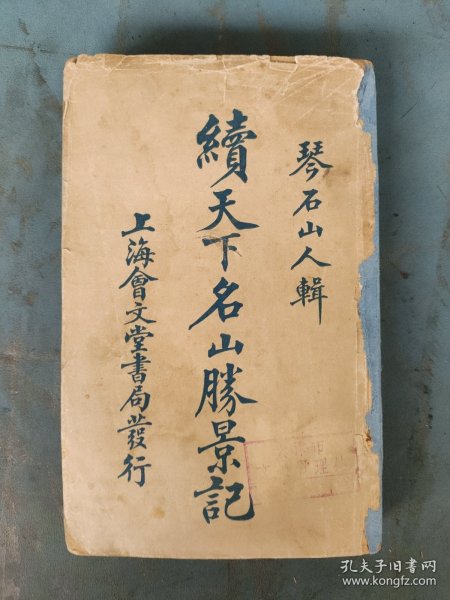 琴石山人輯
續天下名山勝景記
上海會文堂書局發行
孔夫子旧书网
www.kongfz.com